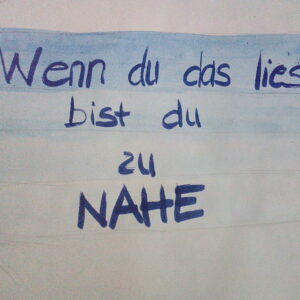 Wenn du das lies
bist du
zu
NAHE